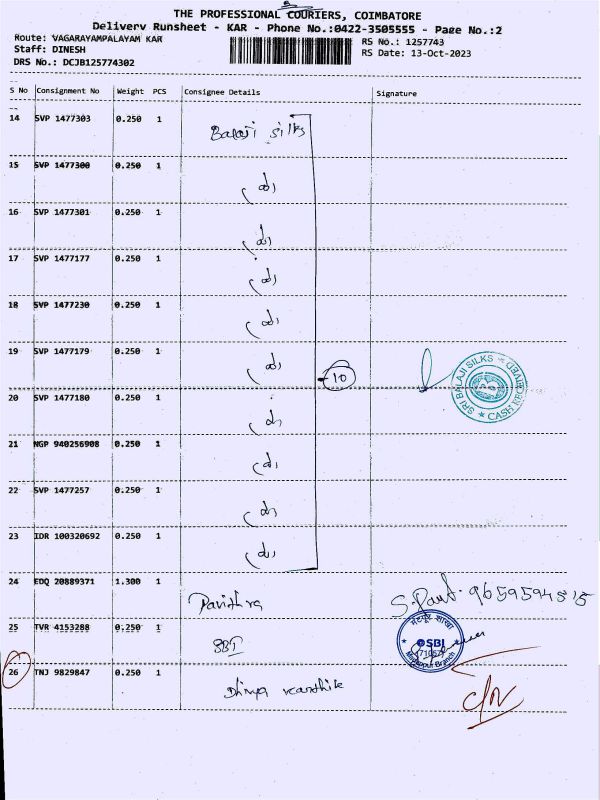 THE PROFESSIONAL COURIERS, COIMBATORE
Delivery Runsheet - KAR - Phone No.:0422-3505555 - Page No.:2
Route: VAGARAYAMPALAYAM KAR
RS No.: 1257743
Staff: DINESH
RS Date: 13-Oct-2023
DRS No.: DCJB125774302
S No Consignment No Weight PCS Consignee Details Signature
14 SVP 1477303 0.250 1 Balaji Silks
15 SVP 1477300 0.250 1
16 SVP 1477301 0.250 1
17 SVP 1477177 0.250 1
18 SVP 1477230 0.250 1
19 SVP 1477179 0.250 1
10
SRI BALAJI SILKS ★ CASH RECEIVED ★
20 SVP 1477180 0.250 1
21 NGP 940256908 0.250 1
22 SVP 1477257 0.250 1
23 IDR 100320692 0.250 1
24 EDQ 20889371 1.300 1 Pavithra
25 TVR 4153288 0.250 1 SBI
SBI
Branch
26 TNJ 9829847 0.250 1 Dhivya